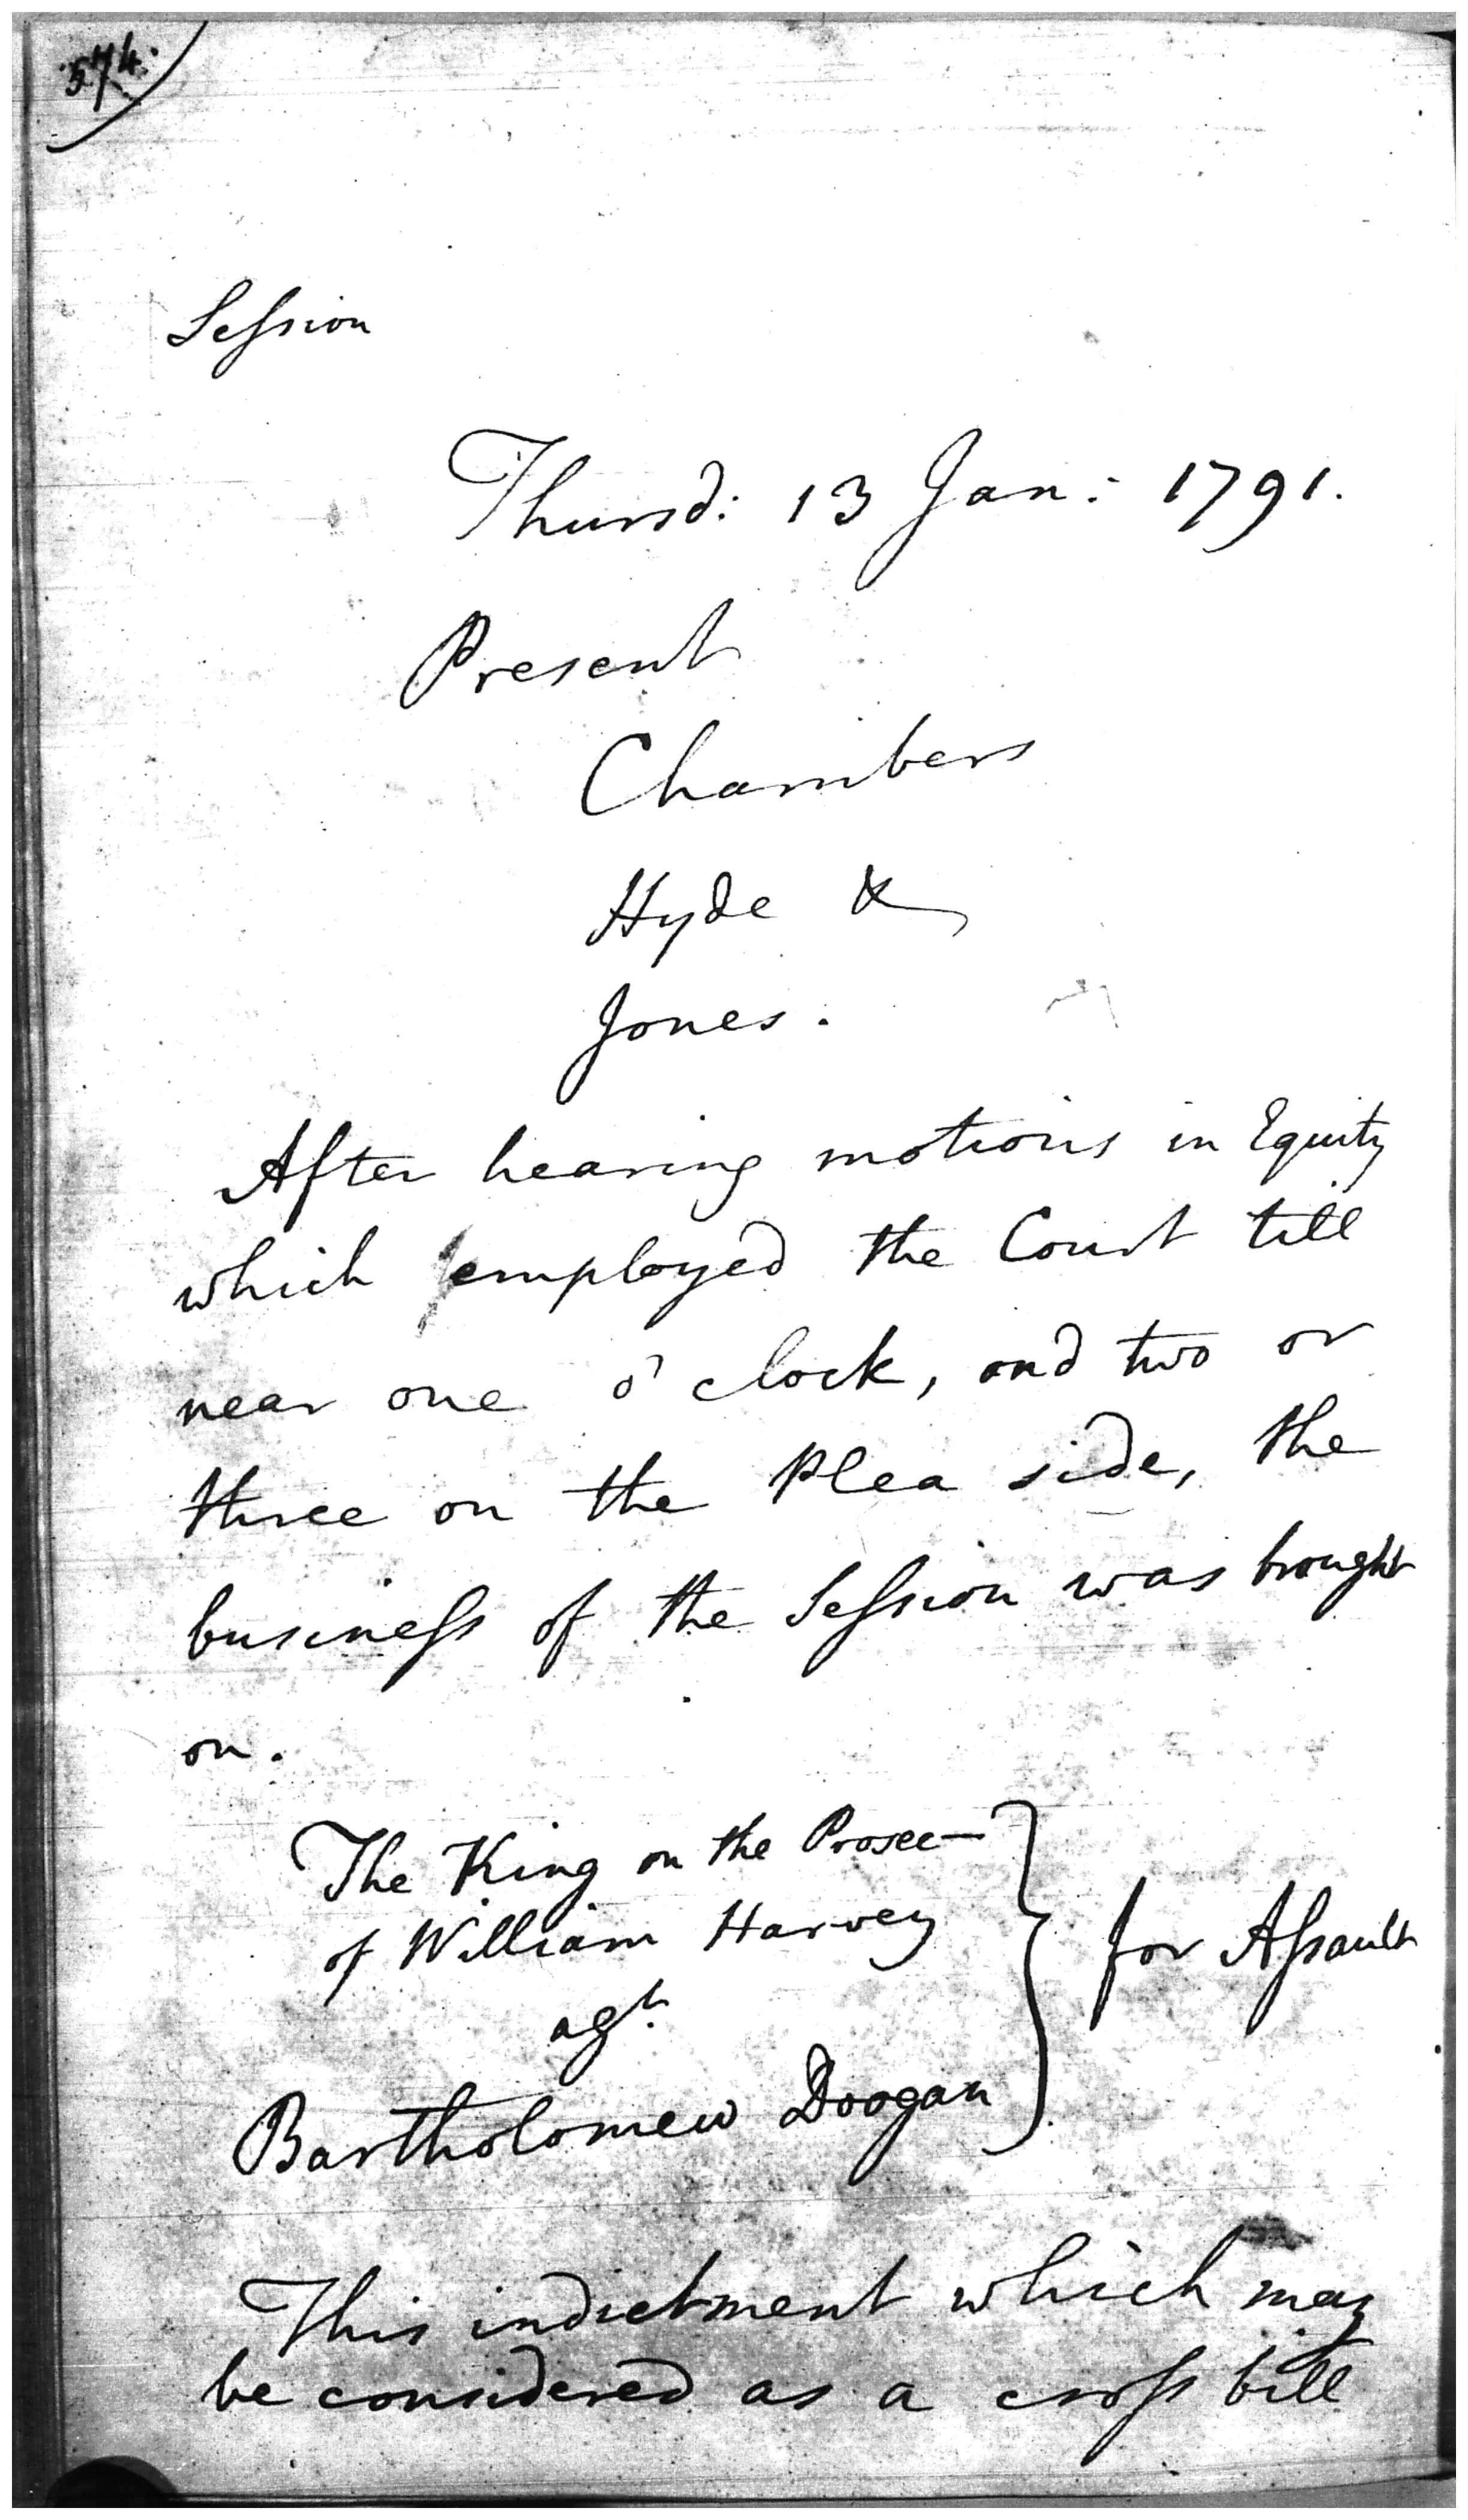 574.
Session
Thursd: 13 Jan: 1791.
Present
Chambers
Hyde &
Jones.
After hearing motions in Equity
which employed the Court till
near one o' clock, and two or
three on the Plea side, the
business of the Session was brought
on.
The King on the Prosec—
of William Harvey
agt.
Bartholomew Doogan
for Assault
This indictment which may
be considered as a cross bill